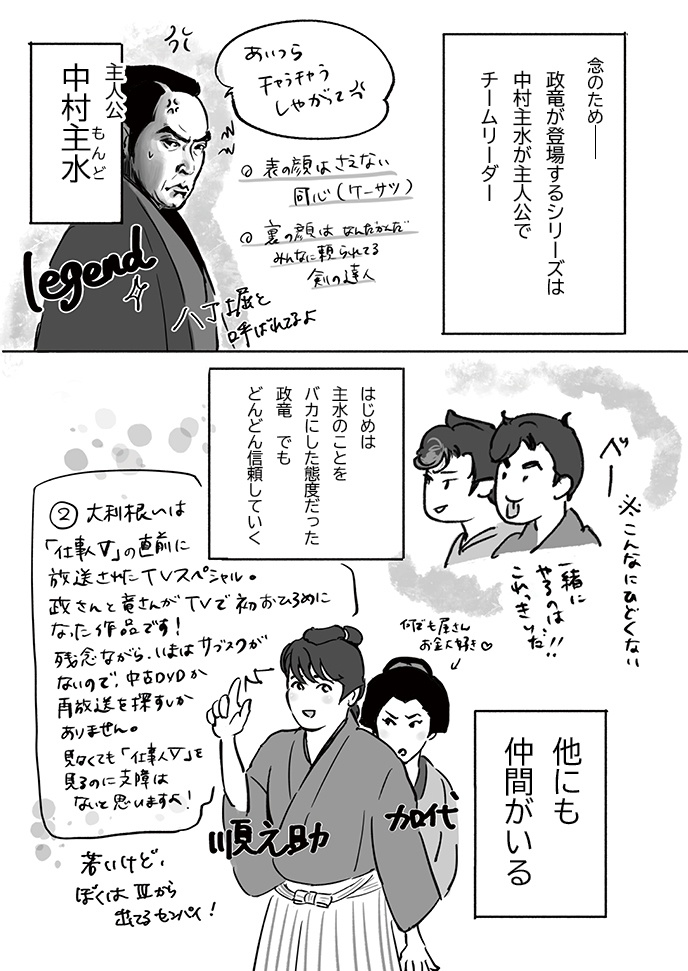 念のため――
政竜が登場するシリーズは
中村主水が主人公で
チームリーダー
あいつら
チャラチャラ
しやがって
主人公
中村主水
もんど
legend
○表の顔はさえない
同心(ケーサツ)
○裏の顔はなんだかんだ
みんなに頼られてる
剣の達人
八丁堀と
呼ばれてるよ
べー
※こんなにひどくない
一緒に
やるのは
これっきりだ!!
はじめは
主水のことを
バカにした態度だった
政竜 でも
どんどん信頼していく
②大利根〜は
「仕事人Ⅴ」の直前に
放送されたTVスペシャル。
政さんと竜さんがTVで初おひろめに
なった作品です!
残念ながら、いまはサブスクが
ないので、中古DVDか
再放送を探すしか
ありません。
見なくても「仕事人Ⅴ」を
見るのに支障は
ないと思いますよ!
何でも屋さん
お金大好き♡
他にも
仲間がいる
加代
順之助
若いけど、
ぼくはⅢから
出てるセンパイ!